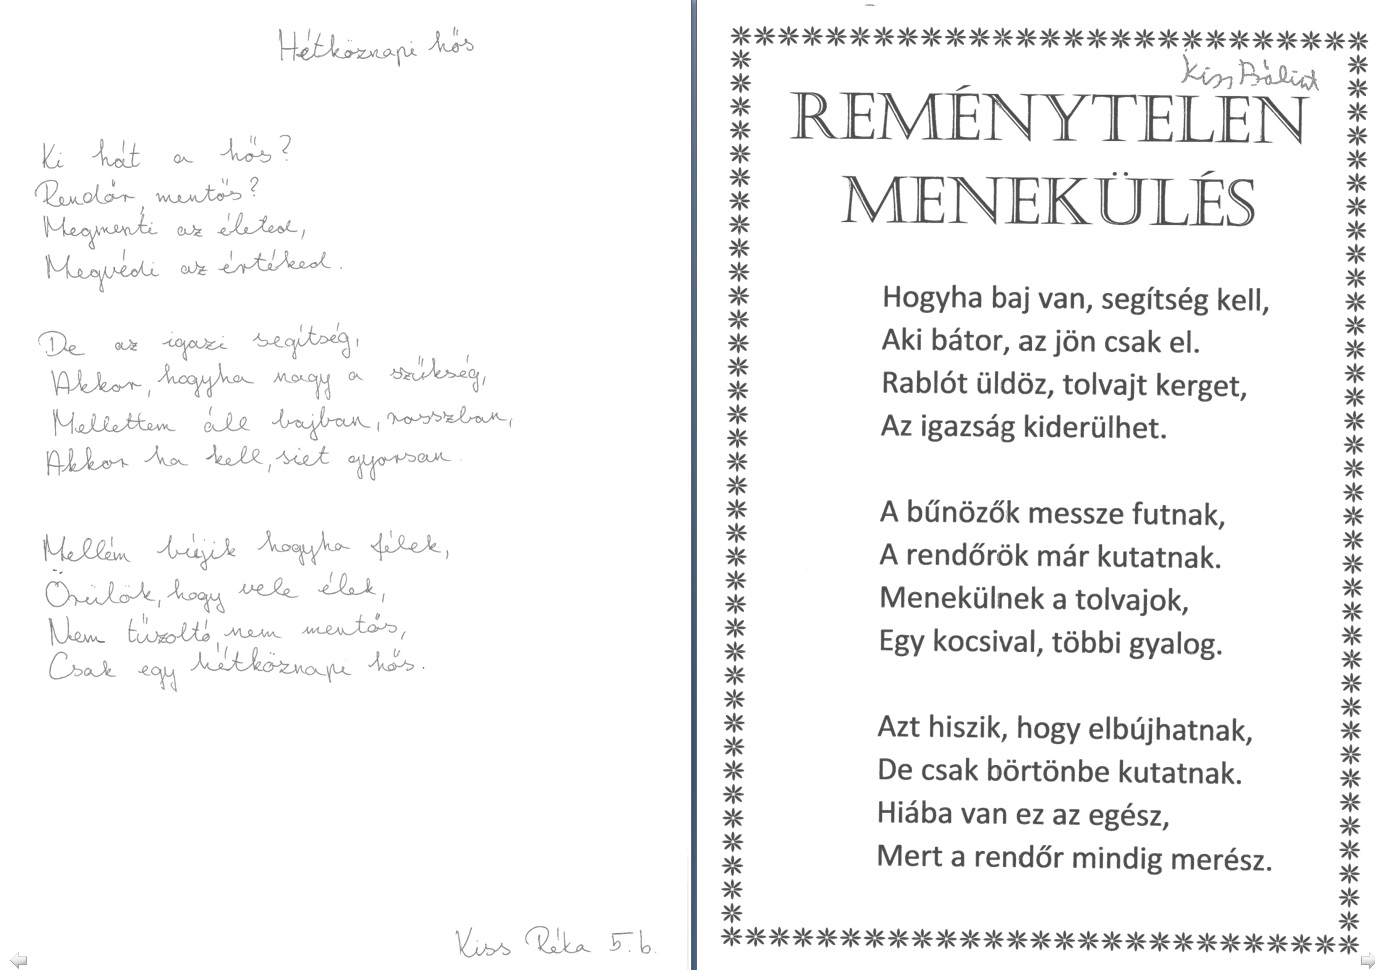 Hétköznapi hős
Ki hát a hős?
Rendőr, mentős?
Megmenti az életed,
Megvédi az értéked.
De az igazi segítség,
Akkor, hogyha nagy a szükség,
Mellettem áll bajban, rosszban,
Akkor ha kell, siet gyorsan.
Mellém bújik hogyha félek,
Örülök, hogy vele élek,
Nem tűzoltó, nem mentős,
Csak egy hétköznapi hős.
Kiss Réka 5.b.
Kiss Bálint
REMÉNYTELEN
MENEKÜLÉS
Hogyha baj van, segítség kell,
Aki bátor, az jön csak el.
Rablót üldöz, tolvajt kerget,
Az igazság kiderülhet.
A bűnözők messze futnak,
A rendőrök már kutatnak.
Menekülnek a tolvajok,
Egy kocsival, többi gyalog.
Azt hiszik, hogy elbújhatnak,
De csak börtönbe kutatnak.
Hiába van ez az egész,
Mert a rendőr mindig merész.